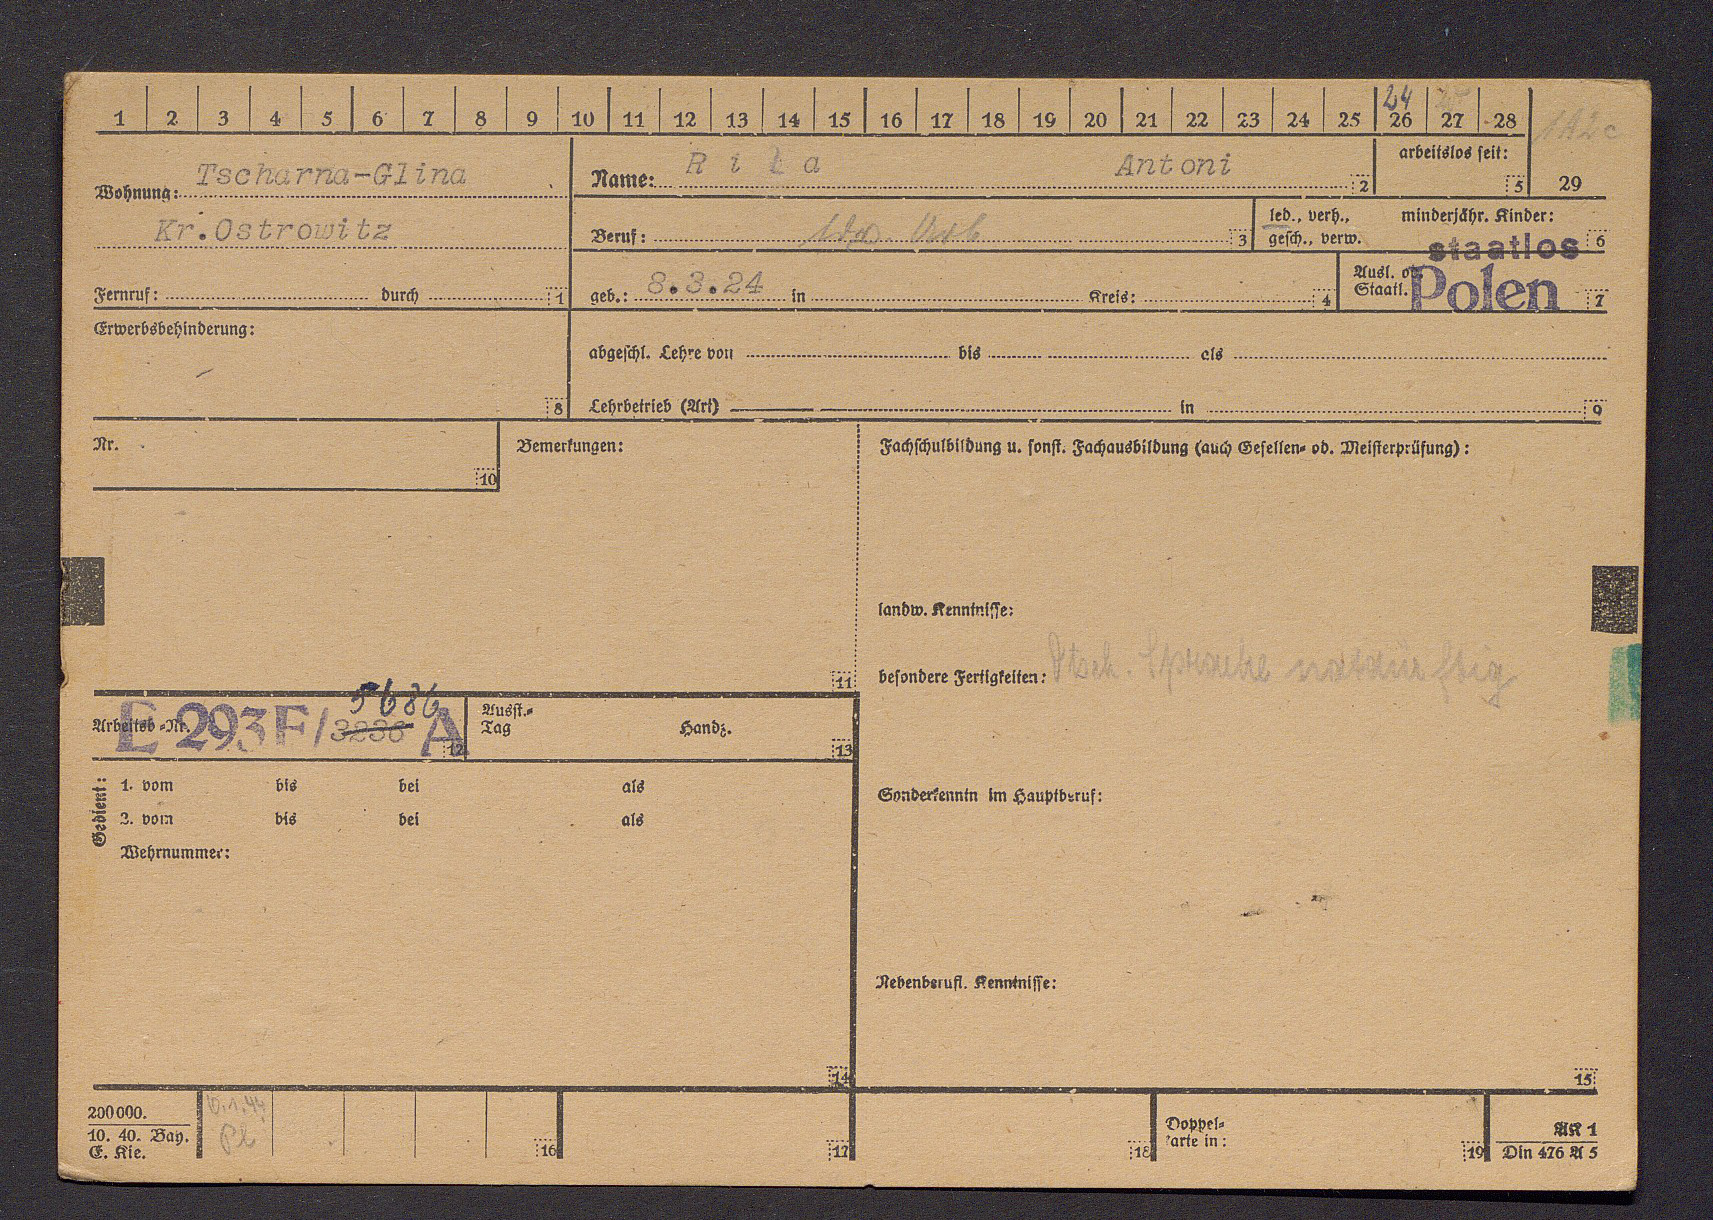 1 2 3 4 5 6 7 8 9 10 11 12 13 14 15 16 17 18 19 20 21 22 23 24 25 26 27 28
24
112c
Wohnung: Tscharna-Glina
Kr.Ostrowitz
Fernruf: durch 1
Name: R i l a Antoni 2
arbeitslos seit: 5
29
Beruf: 3
led., verh.,
gesch., verw.
minderjähr. Kinder: 6
geb.: 8.3.24 in Kreis: 4
staatlos
Ausl. o
Staatl. Polen 7
Erwerbsbehinderung:
– 8
abgeschl. Lehre von bis als
Lehrbetrieb (Art) in 9
Nr. 10
Bemerkungen: 11
Fachschulbildung u. sonst. Fachausbildung (auch Gesellen- od. Meisterprüfung):
landw. Kenntnisse:
besondere Fertigkeiten: Dtsch. Sprache notdürftig
Sonderkenntn im Hauptberuf:
Nebenberufl. Kenntnisse:
15
5686
Arbeitsb.-Nr. E 293 F/3236 A 12
Ausst.-
Tag Handz. 13
Gedient:
1. vom bis bei als
2. vom bis bei als
Wehrnummer:
14
200000.
10. 40. Bay.
E. Kie.
10.1.44
Pl
16 17 18
Doppel-
karte in: 19
AK 1
Din 476 A 5